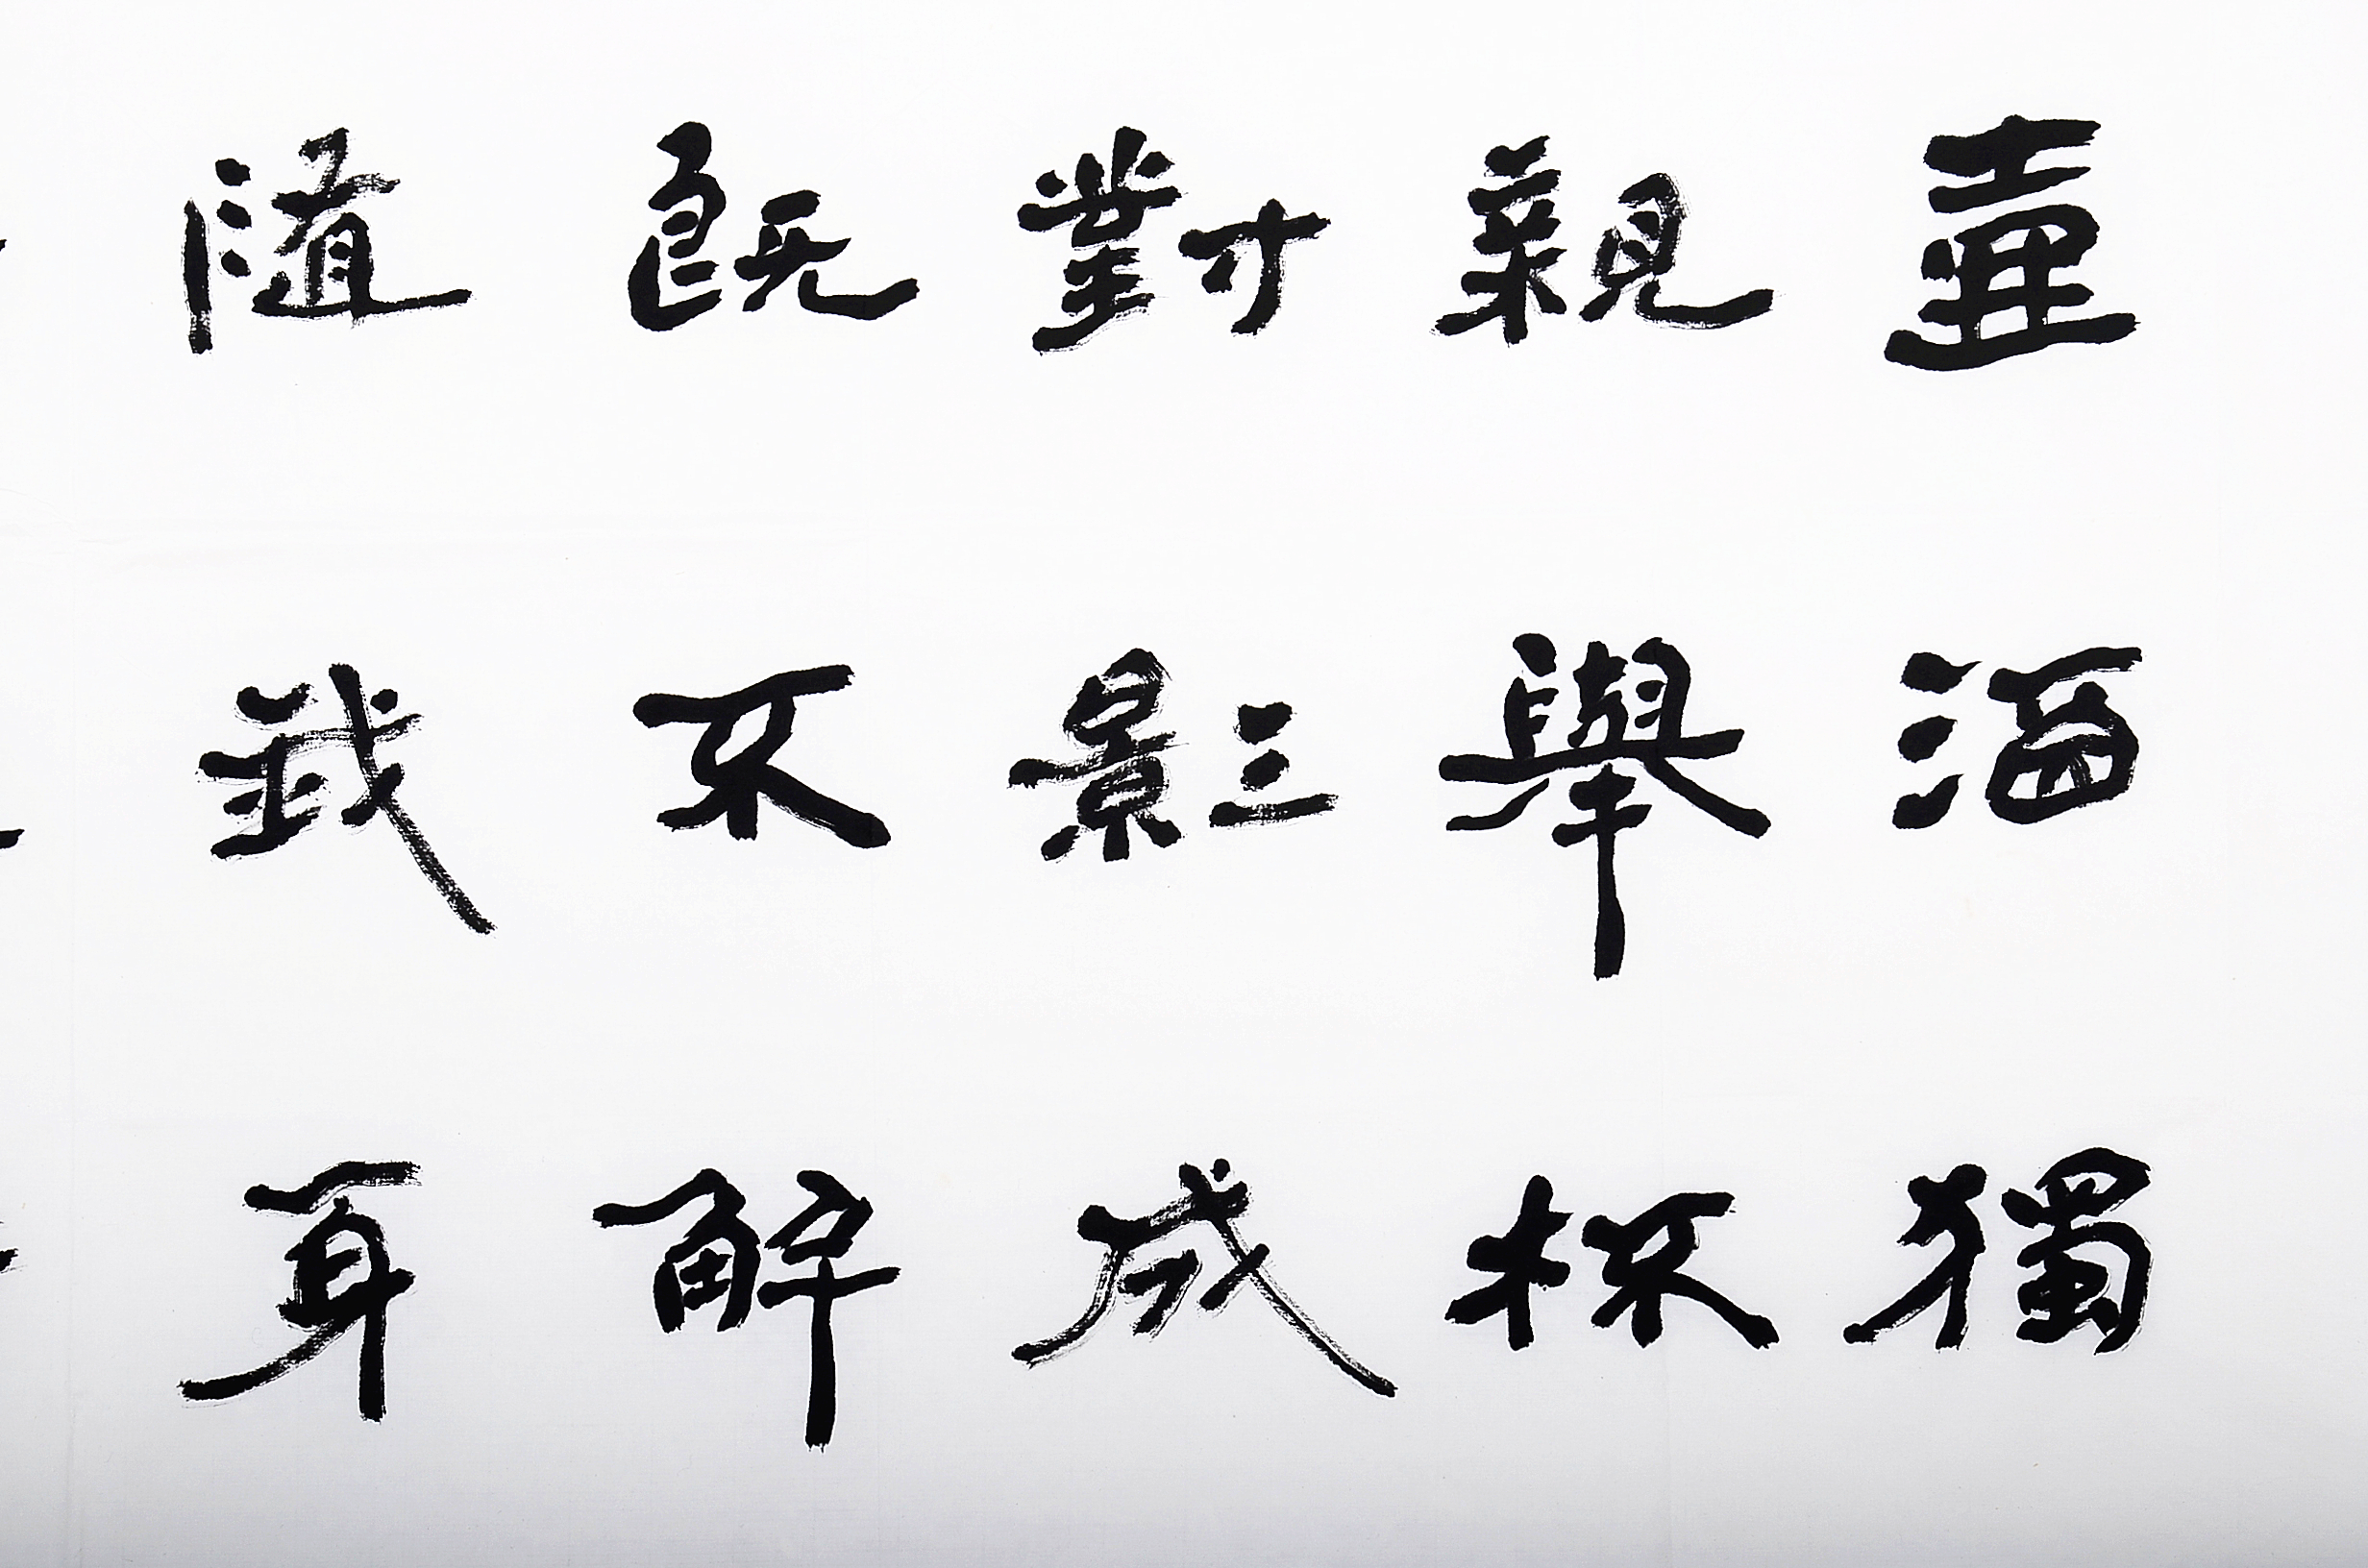 壺酒獨
親舉杯
對影成
既不解
隨我身